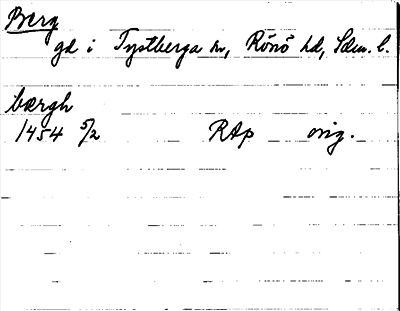 Berg
gd i Tystberga sn, Rönö hd, Sdm. l.
bærgh
1454 5/2 RAp orig.